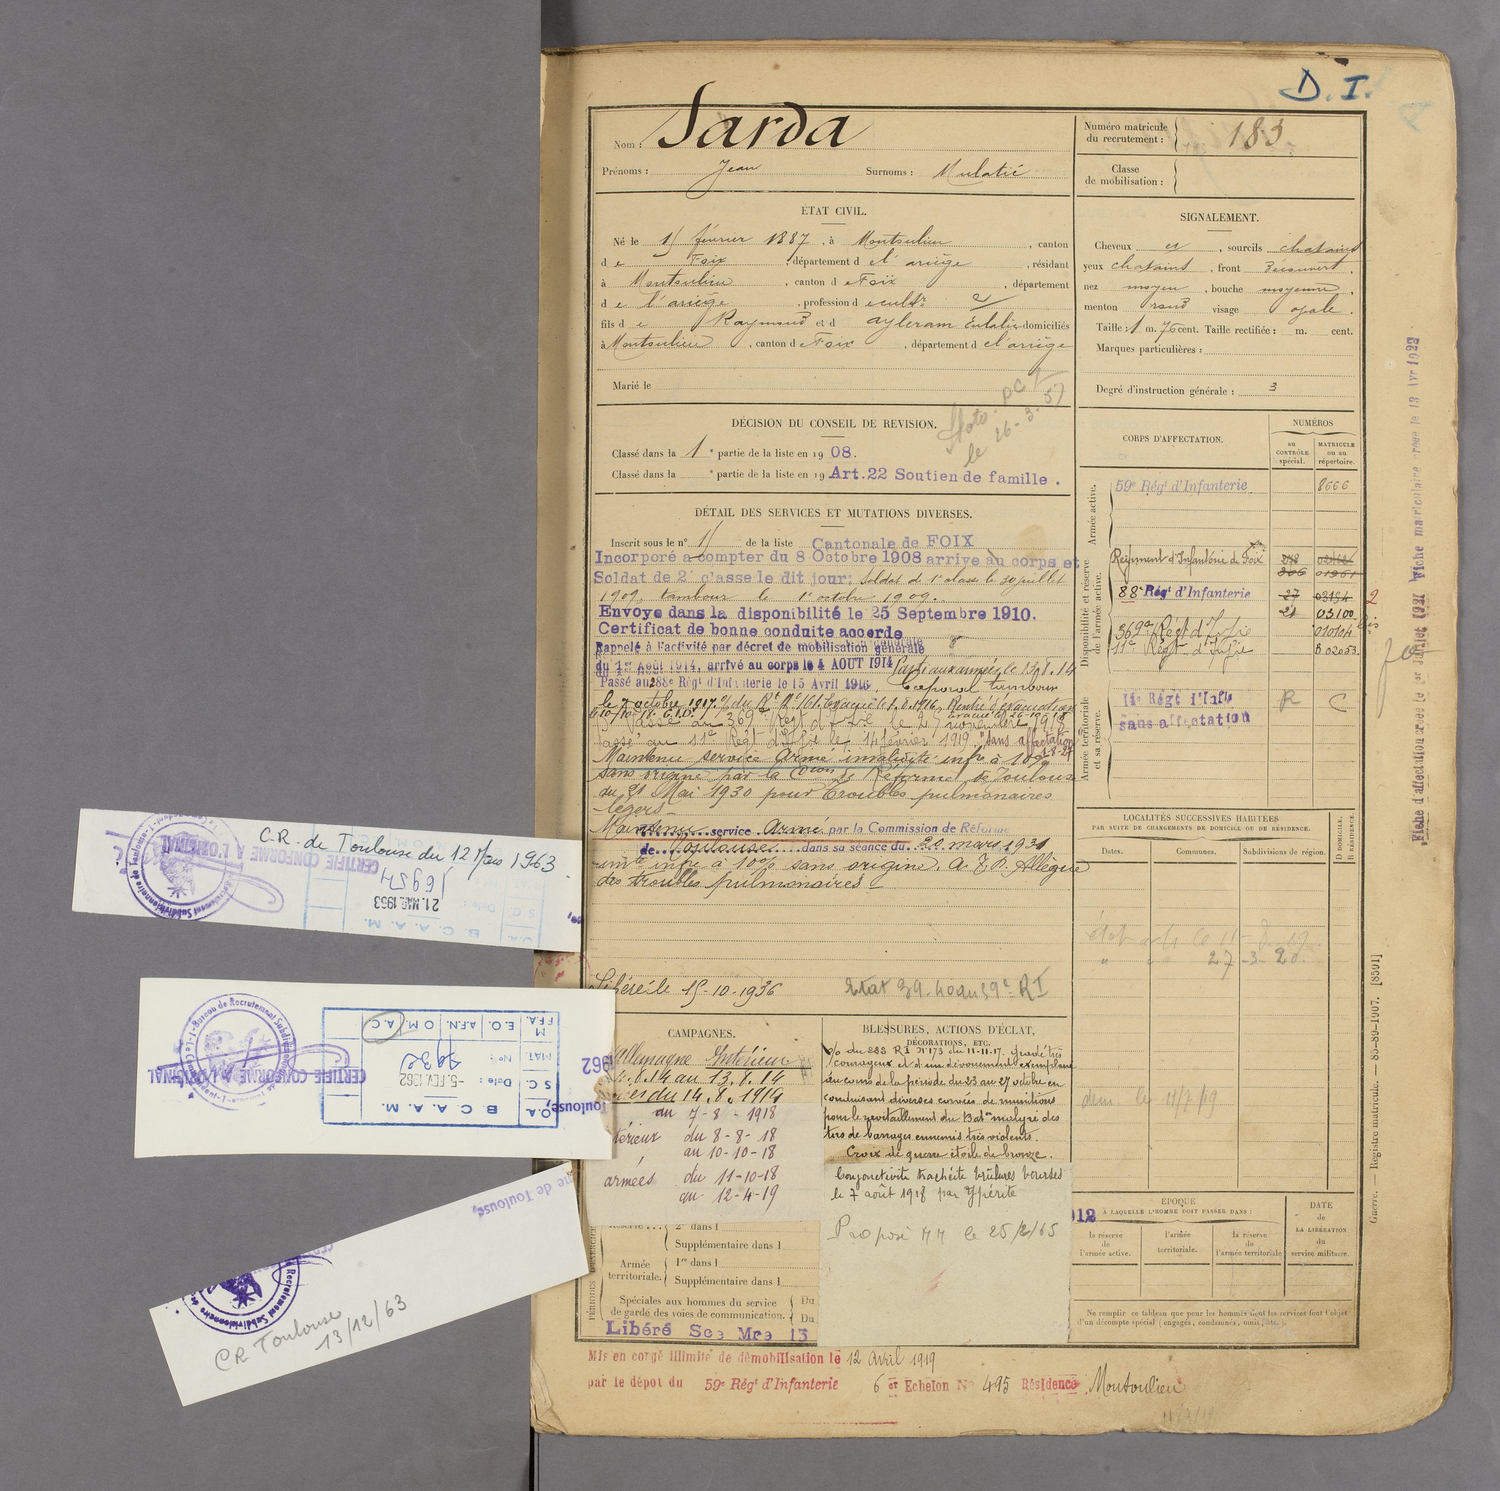 D. I.
Nom : Sarda
Prénoms : Jean Surnoms : Mulatié
Numéro matricule du recrutement : 183
Classe de mobilisation :
ÉTAT CIVIL.
Né le 1 février 1887, à Montoulieu, canton
de Foix, département de l'ariège, résidant
à Montoulieu, canton de Foix, département
de l'ariège, profession de cultr
fils de Raymond et d'Ayleram Eulalie domiciliés
à Montoulieu, canton de Foix, département de l'ariège
Marié le
SIGNALEMENT.
Cheveux et, sourcils chatains
yeux chatains, front découvert,
nez moyen, bouche moyenne,
menton rond visage ovale.
Taille : 1 m. 76 cent. Taille rectifiée : m. cent.
Marques particulières :
Degré d'instruction générale : 3
DÉCISION DU CONSEIL DE REVISION.
Classé dans la 1e partie de la liste en 1908.
Classé dans la e partie de la liste en 19 Art.22 Soutien de famille.
le 26-3-57
DÉTAIL DES SERVICES ET MUTATIONS DIVERSES.
Inscrit sous le n° de la liste Cantonale de FOIX
Incorporé a compter du 8 Octobre 1908 arrive au corps et
Soldat de 2e classe le dit jour; Soldat de 1e classe le 10 juillet
1909, tambour le 1e octobre 1909.
Envoye dans la disponibilité le 25 Septembre 1910.
Certificat de bonne conduite accorde
Rappelé à l'activité par décret de mobilisation générale
du 1er Août 1914, arrivé au corps le 4 AOUT 1914 Parti aux armées le 13.8.14
Passé au 288e Régt d'Infanterie le 15 Avril 1916. Caporal tambour
le 7 octobre 1917
Passé au 369e Régt d'Infie le 25 novembre 1918
Passé au 11e Régt d'Infie le 14 février 1919 "sans affectation"
Maintenu service armé invalidité infre à 10%
sans origine par la Con de Réforme de Toulouse
du 21 Mai 1930 pour troubles pulmonaires
légers
Maintenu service Armé par la Commission de Réforme
de Toulouse dans sa séance du 20 mars 1931
infre à 10% sans origine. Allègue
des troubles pulmonaires
Libéré le 15-10-1936
Etat 39-40 au 59e RI
CORPS D'AFFECTATION.
NUMÉROS
au CONTRÔLE spécial.
MATRICULE ou au répertoire.
Armée active.
59e Régt d'Infanterie 8666
Disponibilité et réserve de l'armée active.
Régiment d'Infanterie de Foix
88e Régt d'Infanterie 27 03154
21 03100
369e Régt d'Infie 010104
11e Régt d'Infie 02053
Armée territoriale et sa réserve.
14e Régt d'Infie R C
sans affectation
LOCALITÉS SUCCESSIVES HABITÉES
PAR SUITE DE CHANGEMENTS DE DOMICILE OU DE RÉSIDENCE.
Dates. Communes. Subdivisions de région. D DOMICILE. R RÉSIDENCE.
27 -3- 20.
dem. le 11/7/19
CAMPAGNES.
Allemagne Intérieur
4.8.14 au 13.8.14
du 14.8.1914
au 7-8-1918
térieur du 8-8-18
au 10-10-18
armées du 11-10-18
au 12-4-19
2e dans l
Supplémentaire dans l
Armée territoriale. 1re dans l
Supplémentaire dans l
Spéciales aux hommes du service Du
de garde des voies de communication. Du
Libéré Sce Mre 13
BLESSURES, ACTIONS D'ÉCLAT,
DÉCORATIONS, ETC.
o/o du 288 RI N° 173 du 11-11-17. Gradé très
courageux et d'un dévouement exemplaire
au cours de la période du 23 au 27 octobre en
conduisant diverses corvées de munitions
pour le ravitaillement du Baton malgré des
tirs de barrages ennemis très violents.
Croix de guerre étoile de bronze.
Conjonctivite trachéite brûlures bourses
le 7 août 1918 par Ypérite
Proposé MM le 25/2/65
912
ÉPOQUE
À LAQUELLE L'HOMME DOIT PASSER DANS :
la réserve de l'armée active.
l'armée territoriale.
la réserve de l'armée territoriale
DATE de LA LIBÉRATION du service militaire.
Ne remplir ce tableau que pour les hommes dont les services font l'objet
d'un décompte spécial (engagés, condamnés, omis, etc.).
Mis en congé illimité de démobilisation le 12 Avril 1919
par le dépot du 59e Régt d'Infanterie 6 er Echelon N° 495 Résidence Montoulieu
Guerre. — Registre matricule. — 85-80-1907. [8501]
C.R. de Toulouse du 12 Mars 1963.
CERTIFIÉ CONFORME A L'ORIGINAL
B.C.A.A.M.
21. MAR. 1963
16954
Bureau de Recrutement Subdivisionnaire de
CERTIFIÉ CONFORME A L'ORIGINAL
Toulouse,
1962
O.A. B.C.A.A.M.
S.C. Date : -5. FEV. 1962
MAT. N° :
M FFA. E.O. A.F.N. O.M. A.C.
de Toulouse,
CR Toulouse
13/12/63